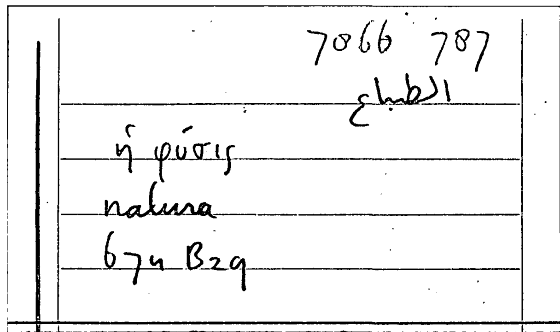 7866 787
الطباع
ἡ φύσις
natura
674 B29